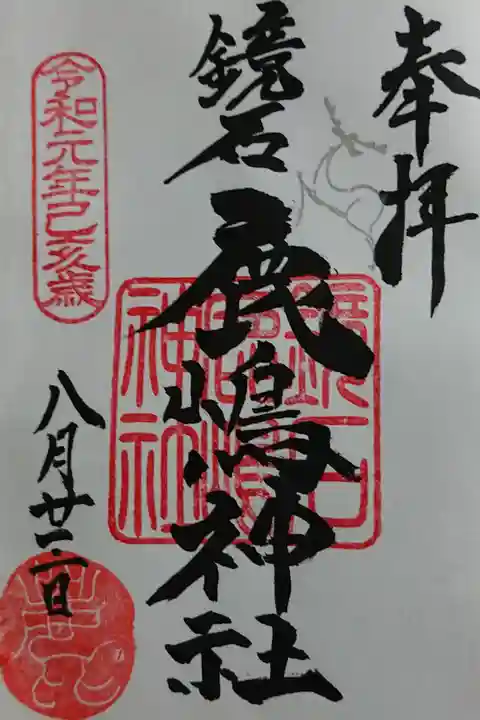 奉拝
鏡石
鹿嶋神社
鏡石鹿嶋神社
令和元年己亥歳
八月廿二日